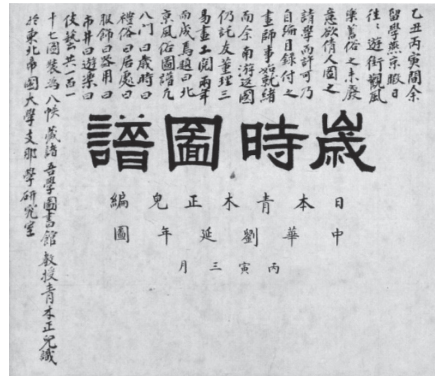 乙丑丙寅間余
留學燕京暇日
往々遊街觀風
樂舊俗之未廢
意欲倩人圖之
請學而許可乃
自編目錄付之
畫師事始就緒
而余南游返國
仍託友董理三
易畫工閱兩年
而成焉題曰北
京風俗圖譜凡
八門曰歲時曰
禮俗曰居處曰
服飾曰器用曰
市井曰遊樂曰
伎藝共一百一
十七圖裝為八帙藏諸吾學圖書館 教授青木正兒識
於東北帝國大學支那學研究室
歲時圖譜
日本青木正兒編
中華劉延年圖
丙寅三月